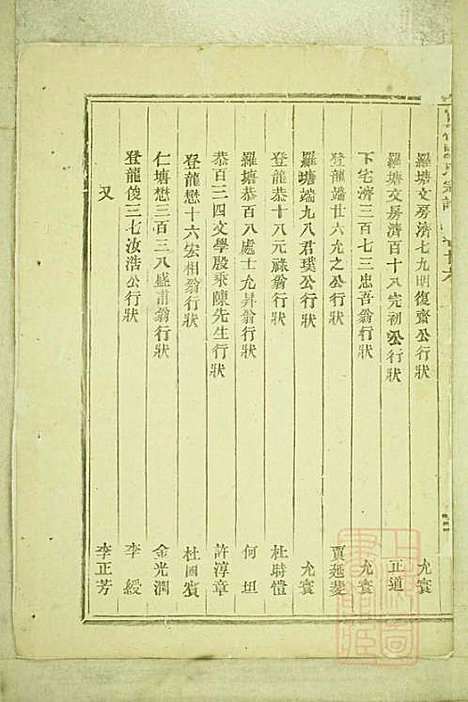 羅塘文房濟七九明復齋公行狀 允實
羅塘文房濟百十八完初公行狀 正道
下宅濟三百七三忠吾翁行狀 允實
登龍端廿六允之公行狀 賈
羅塘端九八君璞公行狀 允實
登龍恭十八元祿翁行狀 杜時愷
羅塘恭百八處士允昇翁行狀 何坦
恭百三四文學殷乘陳先生行狀 許淳章
登龍懋十六宏相翁行狀 杜國賓
仁塘懋三百三八盛甫翁行狀 金光澗
登龍俊三七汝浩公行狀 李綬
又 李正芳